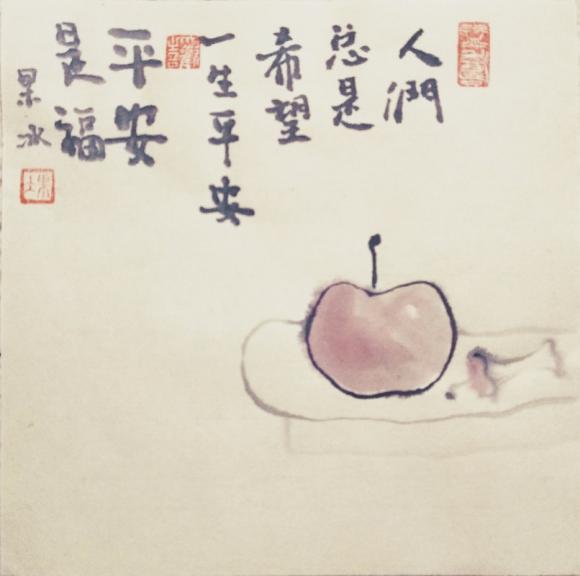 人們
總是
希望
一生平安
平安
是福
果冰